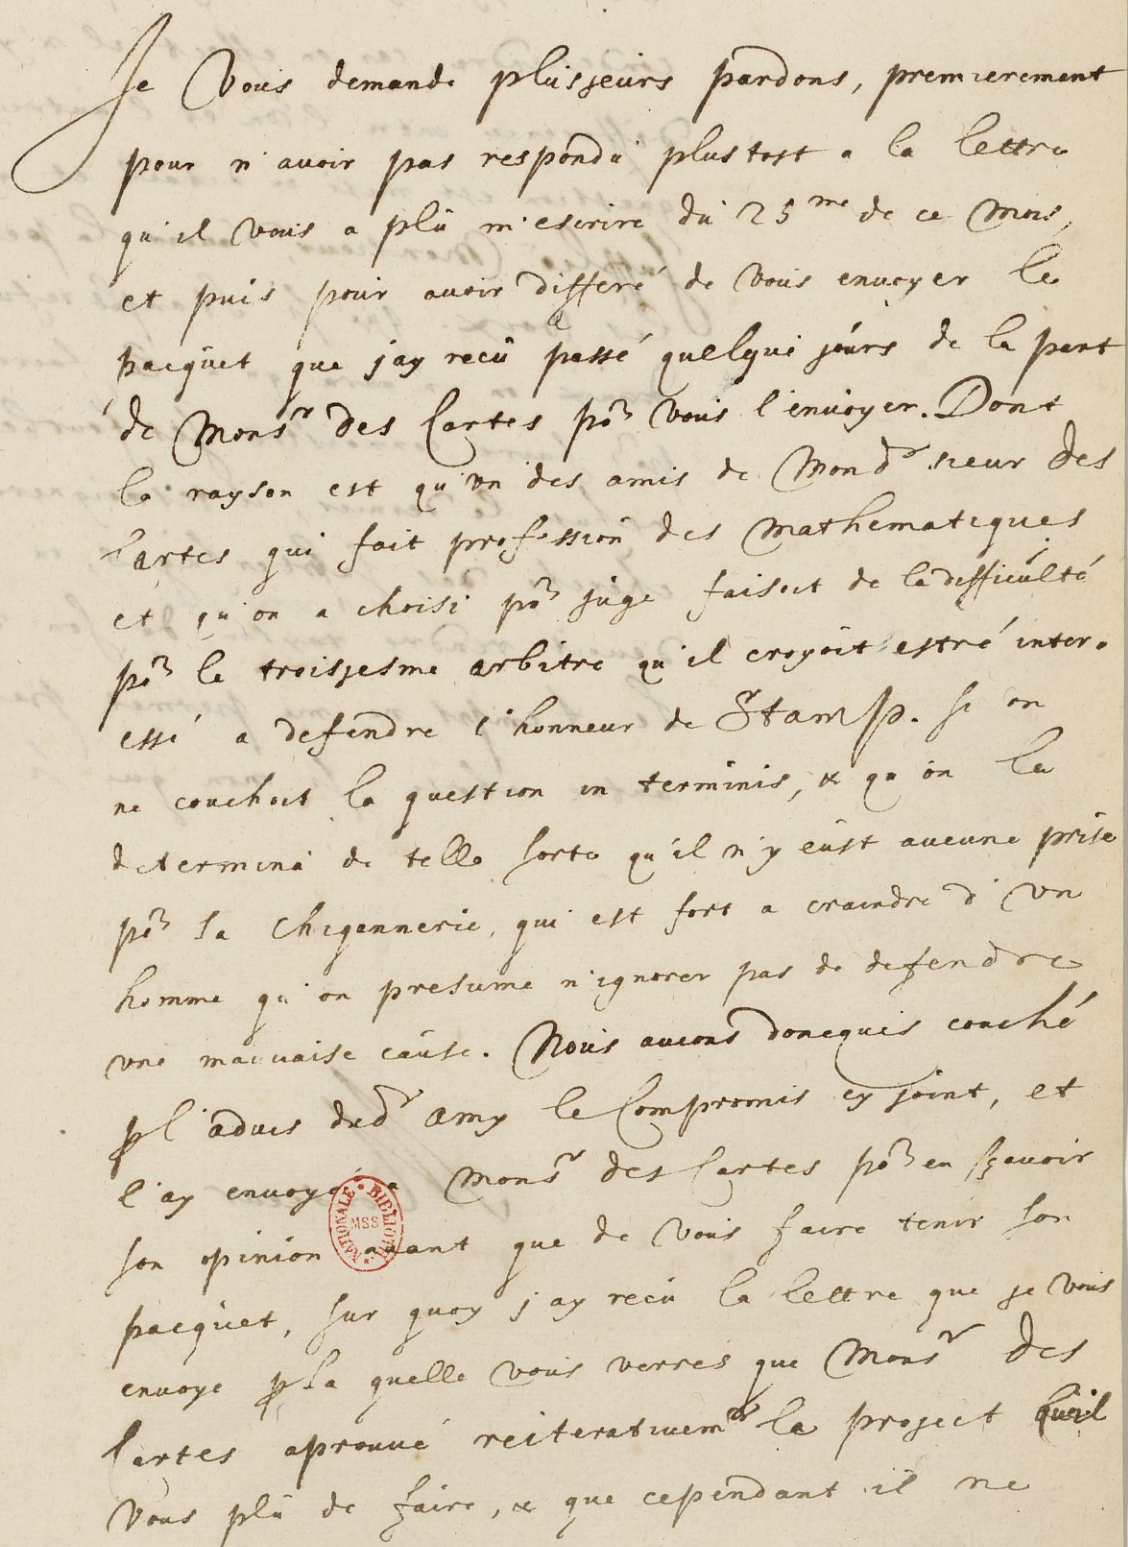 Je Vous demande plusjeurs pardons, premierement
pour n'avoir pas respondu plustost a la lettre
qu'il vous a plû m'escrire du 25me de ce Mois,
et puis pour avoir differé de vous envoyer le
pacquet que j'ay recû passé quelque jours de la part
de Monsr des Cartes por vous l'envoyer. Dont
la rayson est qu'vn des amis de Mondr sieur des
Cartes qui fait profession des Mathematiques
et qu'on a choisi por juge faisoit de la difficulté
por le troisjesme arbitre qu'il croyoit estré inter-
essé a defendre l'honneur de Stamp. si on
ne couchoit la question in terminis, & qu'on la
determina de telle sorte qu'il n'y eust aucune prise
por la Chiqannerie, qui est fort a craindre d'vn
homme qu'on presume n'ignorer pas de defendre
vne mauvaise cause. Nous avons doncques couché
p l'advis dudr amy le Compromis cy joint, et
l'ay envoyé a Monsr des Cartes por en sçavoir
son opinion avant que de vous faire tenir son
pacquet, sur quoy j'ay recu la lettre que je vous
envoye p la quelle vous verres que Monsr des
Cartes aprouve reiterativemt le project quil
vous plû de faire, & que cependant il ne
BIBLIOTH. NATIONALE MSS